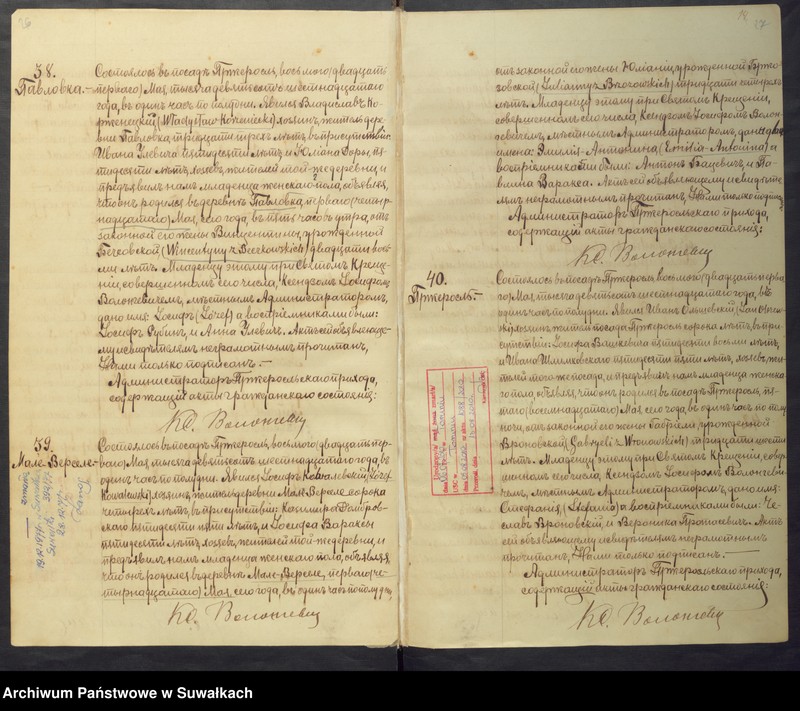 38.
Павловка.—
Состоялось въ посадѣ Пржеросль, восьмого (двадцать
перваго) Мая, тысяча девятьсотъ шестнадцатаго
года, въ одинъ часъ по полудни. Явился Владиславъ Ко-
рженецкій (Władysław Korzeniecki) хозяинъ, житель дерев-
ни Павловка, тридцати трехъ лѣтъ, въ присутствіи:
Ивана Улевича пятидесяти лѣтъ и Юліана Доры, пя-
тидесяти лѣтъ, хозяевъ, жителей той-же деревни, и
предъявилъ намъ младенца женскаго пола, объявляя,
что онъ родился въ деревнѣ Павловка, перваго (четыр-
надцатаго) Мая, сего года, въ пять часовъ утра, отъ
законной его жены Винцентины, урожденной
(Wincentyny z) двадцати вось-
ми лѣтъ. Младенцу этому при Святомъ Креще-
ніи, совершенномъ сего числа, Ксендзомъ Іосифомъ
Волонсевичемъ, мѣстнымъ Администраторомъ,
дано имя: Іосифъ (Józef) а воспріемниками были:
Іосифъ Рубинъ, и Анна Улевичъ. Актъ сей объявляюще-
му и свидѣтелямъ неграмотнымъ прочитанъ,
Нами только подписанъ.—
Администраторъ Пржеросльскаго прихода,
содержащій акты гражданскаго состоянія:
Кс. Волонсевич
39.
Мале-Версele.—
Состоялось въ посадѣ Пржеросль, восьмого (двадцать пер-
ваго) Мая, тысяча девятьсотъ шестнадцатаго года, въ
одинъ часъ по полудни. Явился Іосифъ Ковалевскій (Józef
Kowalewski) хозяинъ, житель деревни Мале-Верселе, сорока
четырехъ лѣтъ, въ присутствіи: Казимира Домбров-
скаго пятидесяти пяти лѣтъ, и Іосифа Вараксы
пятидесяти лѣтъ, хозяевъ, жителей той-же деревни, и
предъявилъ намъ младенца женскаго пола, объявляя,
что онъ родился въ деревнѣ Мале-Верселе, перваго (че-
тырнадцатаго) Мая, сего года, въ одинъ часъ по полудни,
Кс. Волонсевич
27
отъ законной его жены Юліанны, урожденной Бржо-
зовской (Julianny z Brzozowskich) тридцати четырехъ
лѣтъ. Младенцу этому при Святомъ Крещеніи,
совершенномъ сего числа, Ксендзомъ Іосифомъ Волон-
севичемъ, мѣстнымъ Администраторомъ, даны два
имена: Эмилія-Антонина (Emilia-Antonina) а
воспріемниками были: Антонъ Бацевичъ, и Па-
влина Варакса. Актъ сей объявляющему и свидѣте-
лямъ неграмотнымъ прочитанъ, Нами только подписанъ.
Администраторъ Пржеросльскаго прихода,
содержащій акты гражданскаго состоянія:
Кс. Волонсевич
40.
Пржеросль.—
Состоялось въ посадѣ Пржеросль, восьмого (двадцать перва-
го) Мая, тысяча девятьсотъ шестнадцатаго года, въ
одинъ часъ по полудни. Явился Иванъ Ольшевскій (Jan Olszew-
ski) хозяинъ, житель посада Пржеросль, сорока лѣтъ, въ при-
сутствіи: Іосифа Вашкевича пятидесяти восьми лѣтъ,
и Ивана Шлимковскаго пятидесяти пяти лѣтъ, хозяевъ, жи-
телей того же посада, и предъявилъ намъ младенца женска-
го пола, объявляя, что онъ родился въ посадѣ Пржеросль, пя-
таго (восемнадцатаго) Мая, сего года, въ одинъ часъ по полу-
ночи, отъ законной его жены Габріели, урожденной
Вроновской, (Gabryeli z Wronowskich) тридцати шести
лѣтъ. Младенцу этому при Святомъ Крещеніи, совершен-
номъ сего числа, Ксендзомъ Іосифомъ Волонсеви-
чемъ, мѣстнымъ Администраторомъ, дано имя:
Стефанія, (Stefania) а воспріемниками были: Че-
славъ Вроновскій, и Вероника Протасевичъ. Актъ
сей объявляющему и свидѣтелямъ неграмотнымъ
прочитанъ, Нами только подписанъ.—
Администраторъ Пржеросльскаго прихода,
содержащій акты гражданскаго состоянія:
Кс. Волонсевич
Archiwum Państwowe w Suwałkach